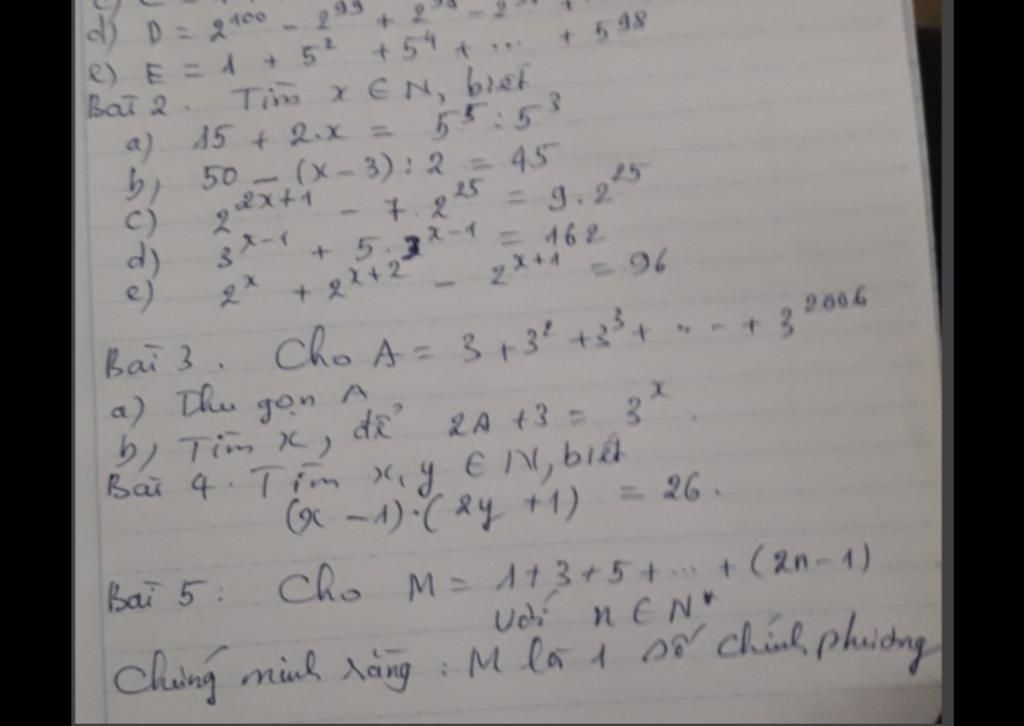 d) D = 2¹⁰⁰ - 2⁹⁹ +
e) E = 1 + 5² + 5⁴ + ... + 5⁹⁸
Bài 2. Tìm x ∈ N, biết
a) 15 + 2.x = 5⁵ : 5³
b, 50 - (x - 3) : 2 = 45
c) 2²ˣ⁺¹ - 7.2²⁵ = 9.2²⁵
d) 3ˣ⁻¹ + 5.3ˣ⁻¹ = 162
e) 2ˣ + 2ˣ⁺² - 2ˣ⁺¹ = 96
Bài 3. Cho A = 3 + 3² + 3³ + ... + 3²⁰⁰⁶
a) Thu gọn A
b, Tìm x, để 2A + 3 = 3ˣ.
Bài 4. Tìm x, y ∈ N, biết
(x - 1).(2y + 1) = 26.
Bài 5: Cho M = 1 + 3 + 5 + ... + (2n - 1)
với n ∈ N*
Chứng minh rằng : M là 1 số chính phương